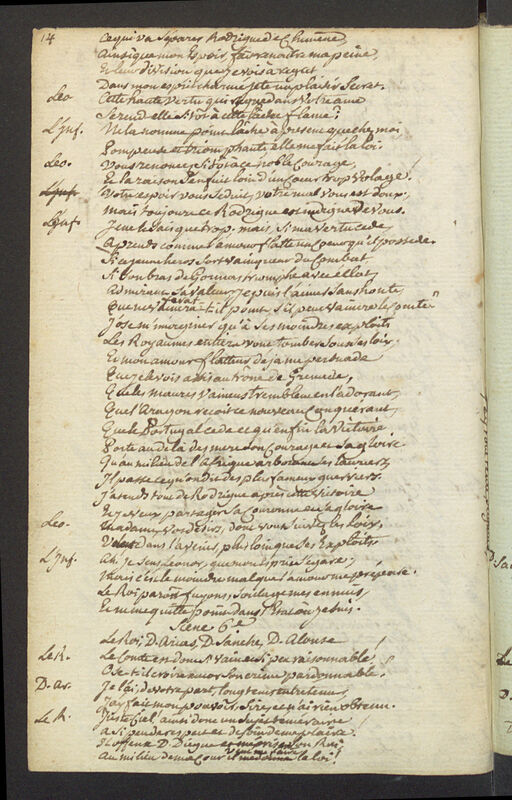 14
Ce qui va séparer Rodrigue de Chimene,
Ainsi que mon espoir, fait renaitre ma peine,
Et leur division que je vois à regret
Dans mon esprit charmé jete un plaisir secret.
Leo Cette haute vertu qui regne dans votre ame
Se rend elle si tôt à cette lache flame?
L'Inf. Ne la nomme point lâche à present que chez moi
Pompeuse et triomphante elle me fait la loi.
Leo. Vous renoncez si tôt à ce noble courage,
Et la raison s'enfuit loin d'un coeur trop volage.
L'Inf. Votre espoir vous séduit, votre mal vous est doux,
mais toujours ce Rodrigue est indigne de vous.
L'Inf. Je ne le sais que trop, mais, si ma vertu cede,
apprends comme l'amour flatte un coeur qu'il possede.
Si ce jeune heros sort vainqueur du combat
Si don bras de Gormas
admirant sa valeur je puis l'aimer sans honte
Que ne t-il point s'il peut vaincre le Comte
J'ose m'imaginer qu'à ses moindres exploits
Les Royaumes entiers vont tomber sous ses loix,
Et mon amour flatteur déja me persuade
Que je le vois assis au trône de Grenade,
Que les maures vaincus tremblent en l'adorant,
Que l'Aragon recoit ce nouveau Conquerant,
Que le Portugal cede et qu'enfin la Victoire
Porte au dela des mers son Courage et sa gloire
Qu'au milieu de l'Afrique arborant ses lauriers
Il passe ce qu'on dit des plus fameux guerriers.
J'attends tout de Rodrigue après cette victoire
Et je veux partager sa Couronne et sa gloire
Leo. madame, vos desirs, dont vous suivez les loix,
Vont dans l'avenir plus loin que ses Exploits.
L'Inf. Ah! je sens, Leonor, que mon esprit s'égare,
mais c'est le moindre mal que l'amour me prépare.
Le Roi paroit fuyons, soulage mes ennuis,
Et ne me quitte point dans l'état où je suis.
Scene 6e
Le Roi, D. Arias, D. Sanche, D. Alonse
Le R. Le Comte est donc si vain et si peu raisonnable,
Ose t-il croire encor son crime pardonnable!
D. ar. Je l'ai de votre part long tems entretenu,
J'ai fait mon pouvoir, Sire, et n'ai rien obtenu.
Le R. Juste Ciel! ainsi donc un sujet téméraire
a si peu de respect et de soin de me plaire!
Il offense D. Diegue et méprise son Roi,
au milieu de ma Cour il me donne la loi!